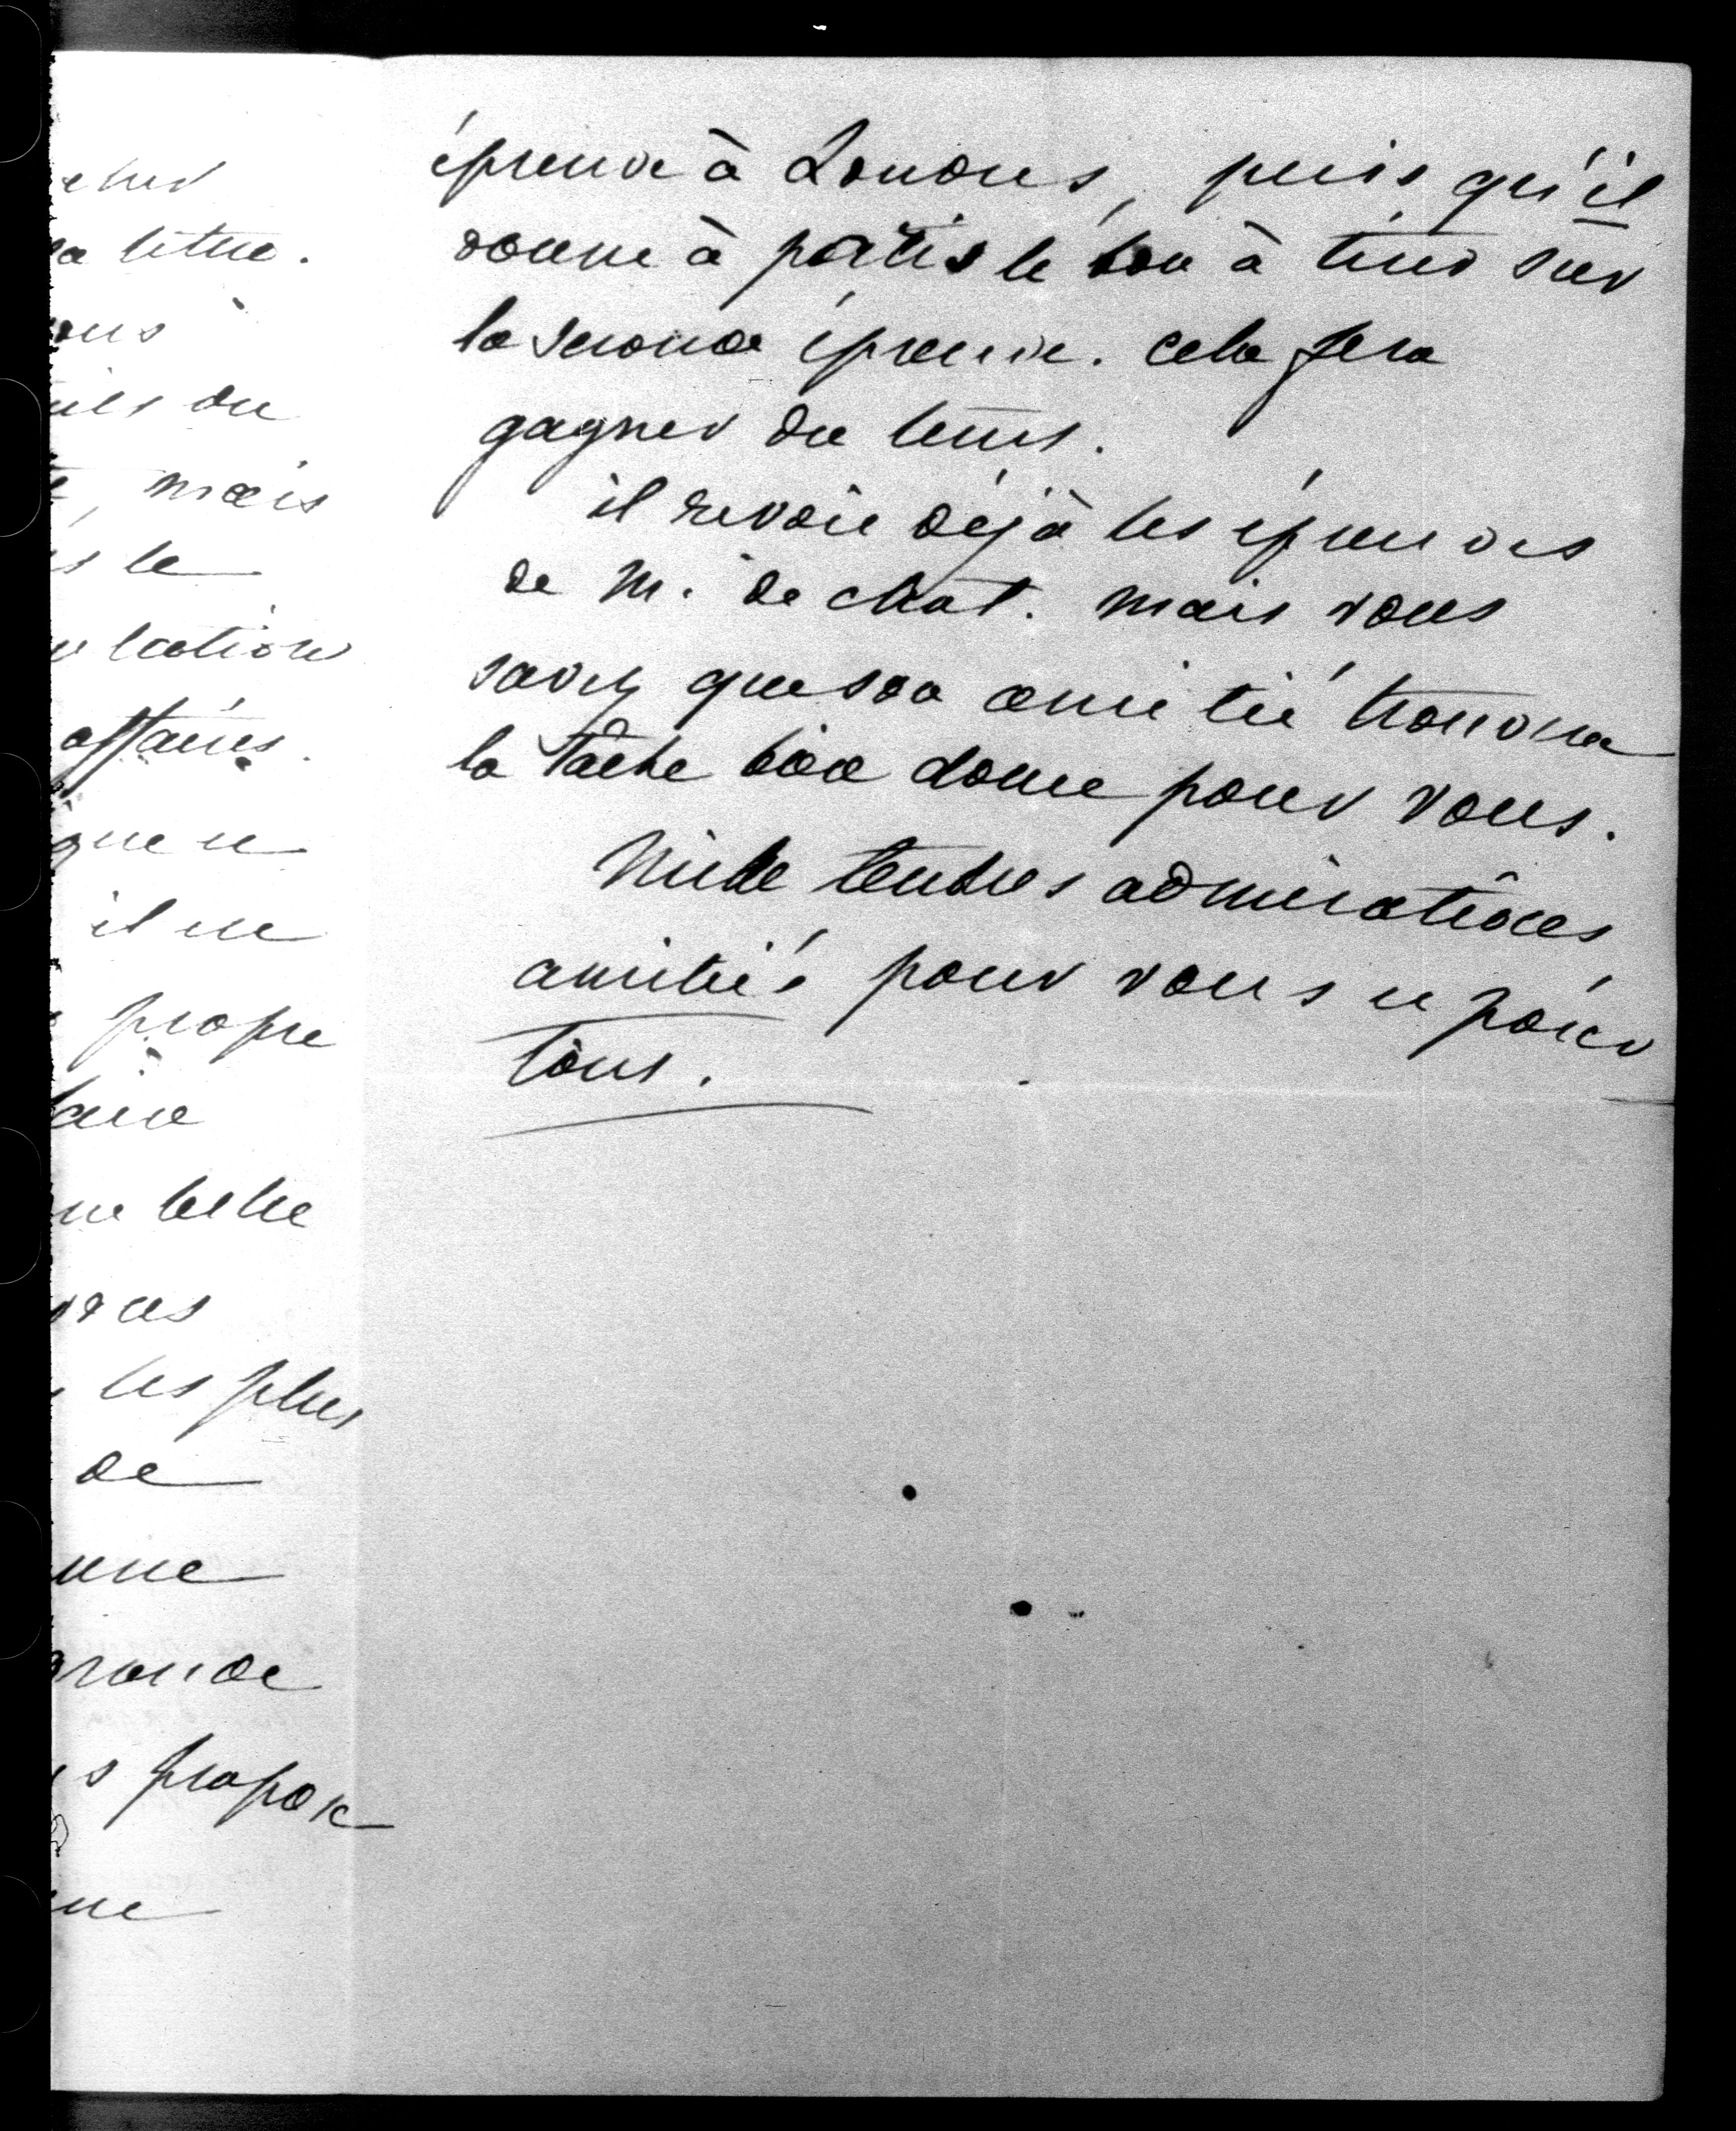 eher
la lettre.
ous
ils du
mais
s le
affaires.
que ce
il ne
propre
faire
ne belle
ces
les plus
de
une
grande
s propose
ne
épreuve à Londres, puis qu'il
donne à partir le bon à tirer sur
la seconde épreuve. cela fera
gagner du tems.
il revoit déjà les épreuves
de M. de chat. mais vous
savez que son amitié trouvera
la tâche bien douce pour vous.
Mille tendres admirations
amitiés pour vous et pour
tous.